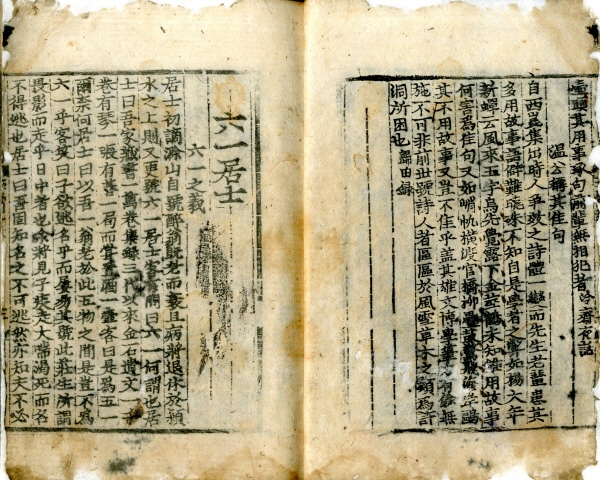 頭其用事琢句前輩無相犯者冷齋夜話
温公稱其佳句
自西崑集出時人爭效之詩體一變而先生老輩患其
多用故事語僻難曉殊不知自是學者之弊如楊大年
新蟬云風來玉宇烏先覺露下金莖鶴未知雖用故事
何害為佳句又如峭帆橫渡官橋柳疊鼓驚飛海岸鷗
其不用故事又豈不佳乎盖其雄文博學筆力有餘無
施不可非前世號詩人者區區於風雲草木之類為許
洞所困也歸田錄
六一居士
六一之義
居士初謫滁山自號醉翁既老而衰且病將退休於潁
水之上則又更號六一居士客有問曰六一何謂也居
士曰吾家藏書一萬卷集錄三代以來金石遺文一千
卷有琴一張有碁一局而常置酒一壺客曰是為五一
爾奈何居士曰以吾一翁老於此五物之間是豈不為
六一乎客笑曰子欲逃名乎而屢易其號此莊生所謂
畏影而走乎日中者也余將見子疾走大喘渴死而名
不得逃也居士曰吾固知名之不可逃然亦知夫不必